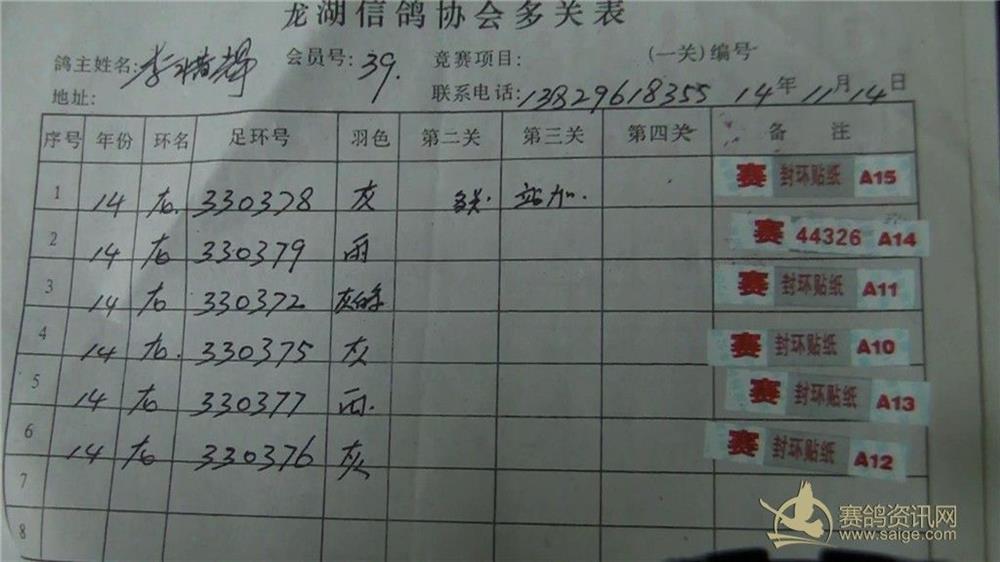 龙湖信鸽协会多关表
鸽主姓名: 会员号: 39. 竞赛项目: (一关)编号
地址: 联系电话: 13829618355 14年11月14日
序号 年份 环名 足环号 羽色 第二关 第三关 第四关 备注
1 14 右. 330378 灰 多关. 站加. 赛 封环贴纸 A15
2 14 右 330379 雨 赛 44326 A14
3 14 右 330372 赛 封环贴纸 A11
4 14 右. 330375 灰 赛 封环贴纸 A10
5 14 右 330377 雨. 赛 封环贴纸 A13
6 14 右 330376 灰 赛 封环贴纸 A12
7
8
赛鸽资讯网
www.saige.com